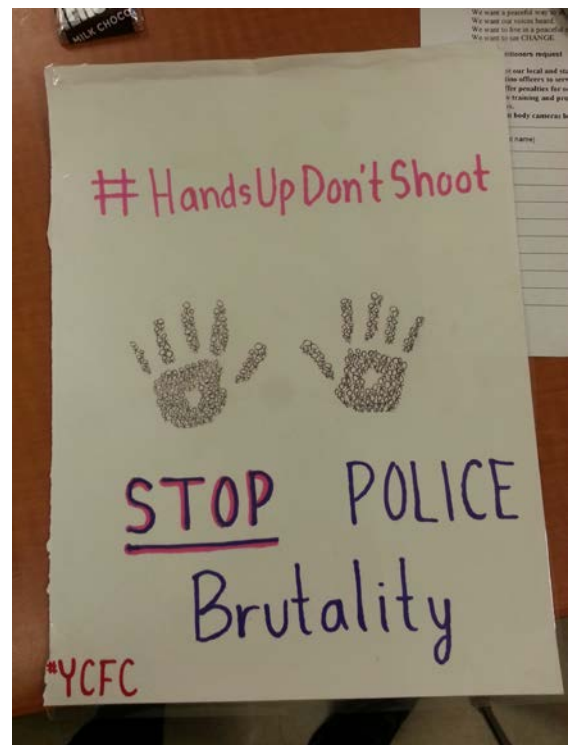 MILK CHOCO
We want a peaceful way to
We want our voices heard
We want to live in a peaceful
We want to see CHANGE.
itioners request
our local and sta
officers to serv
penalties for
training and pro
body cameras
name)
#HandsUpDon'tShoot
STOP POLICE
Brutality
#YCFC